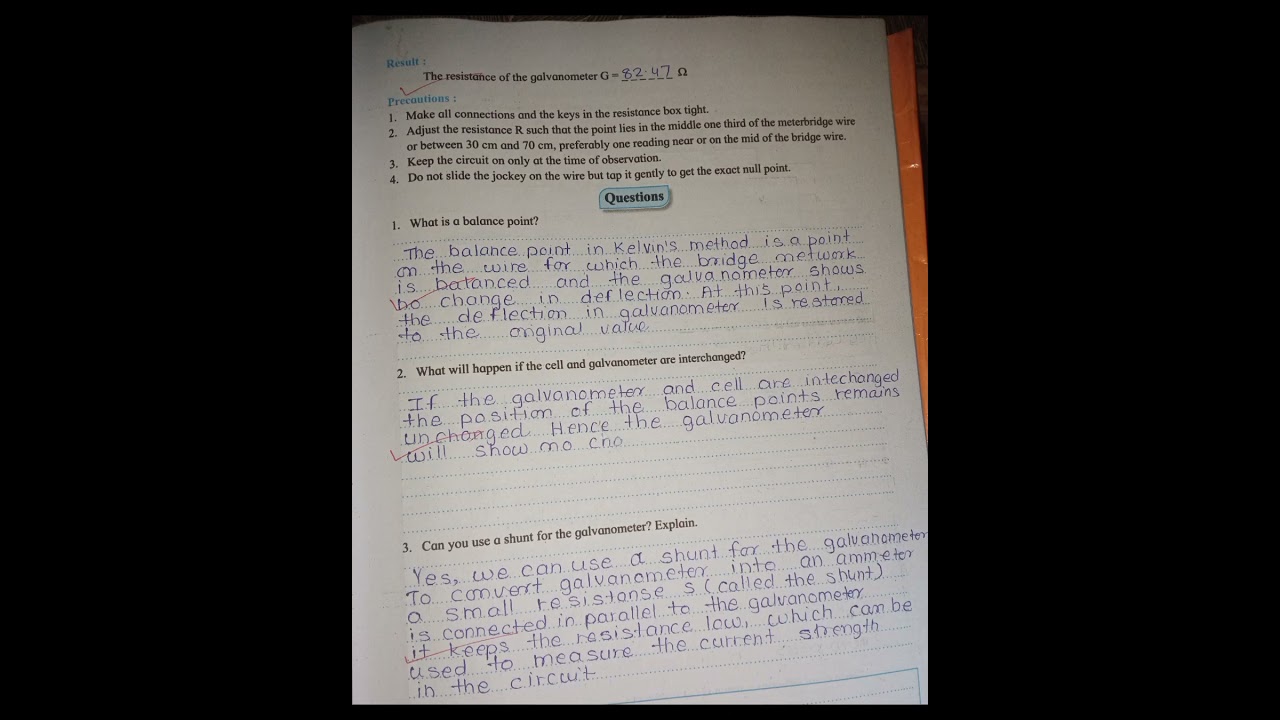 Result :
The resistance of the galvanometer G = 82.47 Ω
Precautions :
1. Make all connections and the keys in the resistance box tight.
2. Adjust the resistance R such that the point lies in the middle one third of the meterbridge wire
or between 30 cm and 70 cm, preferably one reading near or on the mid of the bridge wire.
3. Keep the circuit on only at the time of observation.
4. Do not slide the jockey on the wire but tap it gently to get the exact null point.
Questions
1. What is a balance point?
The balance point in Kelvin's method is a point
on the wire for which the bridge network
is balanced and the galvanometer shows
no change in deflection. At this point,
the deflection in galvanometer is restored
to the original value
2. What will happen if the cell and galvanometer are interchanged?
If the galvanometer and cell are intechanged
the position of the balance points remains
unchanged. Hence the galvanometer
will show no cha
3. Can you use a shunt for the galvanometer? Explain.
Yes, we can use a shunt for the galvanometer
To convert galvanometer into an ammeter
a small resistanse s (called the shunt)
is connected in parallel to the galvanometer
it keeps the resistance low, which can be
used to measure the current strength
in the circuit